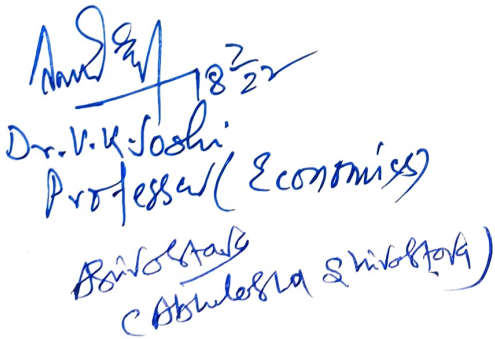 18/2/22
Dr. V. K. Joshi
Professor (Economics)
Asrivastava
(Abhilasha Shrivastava)